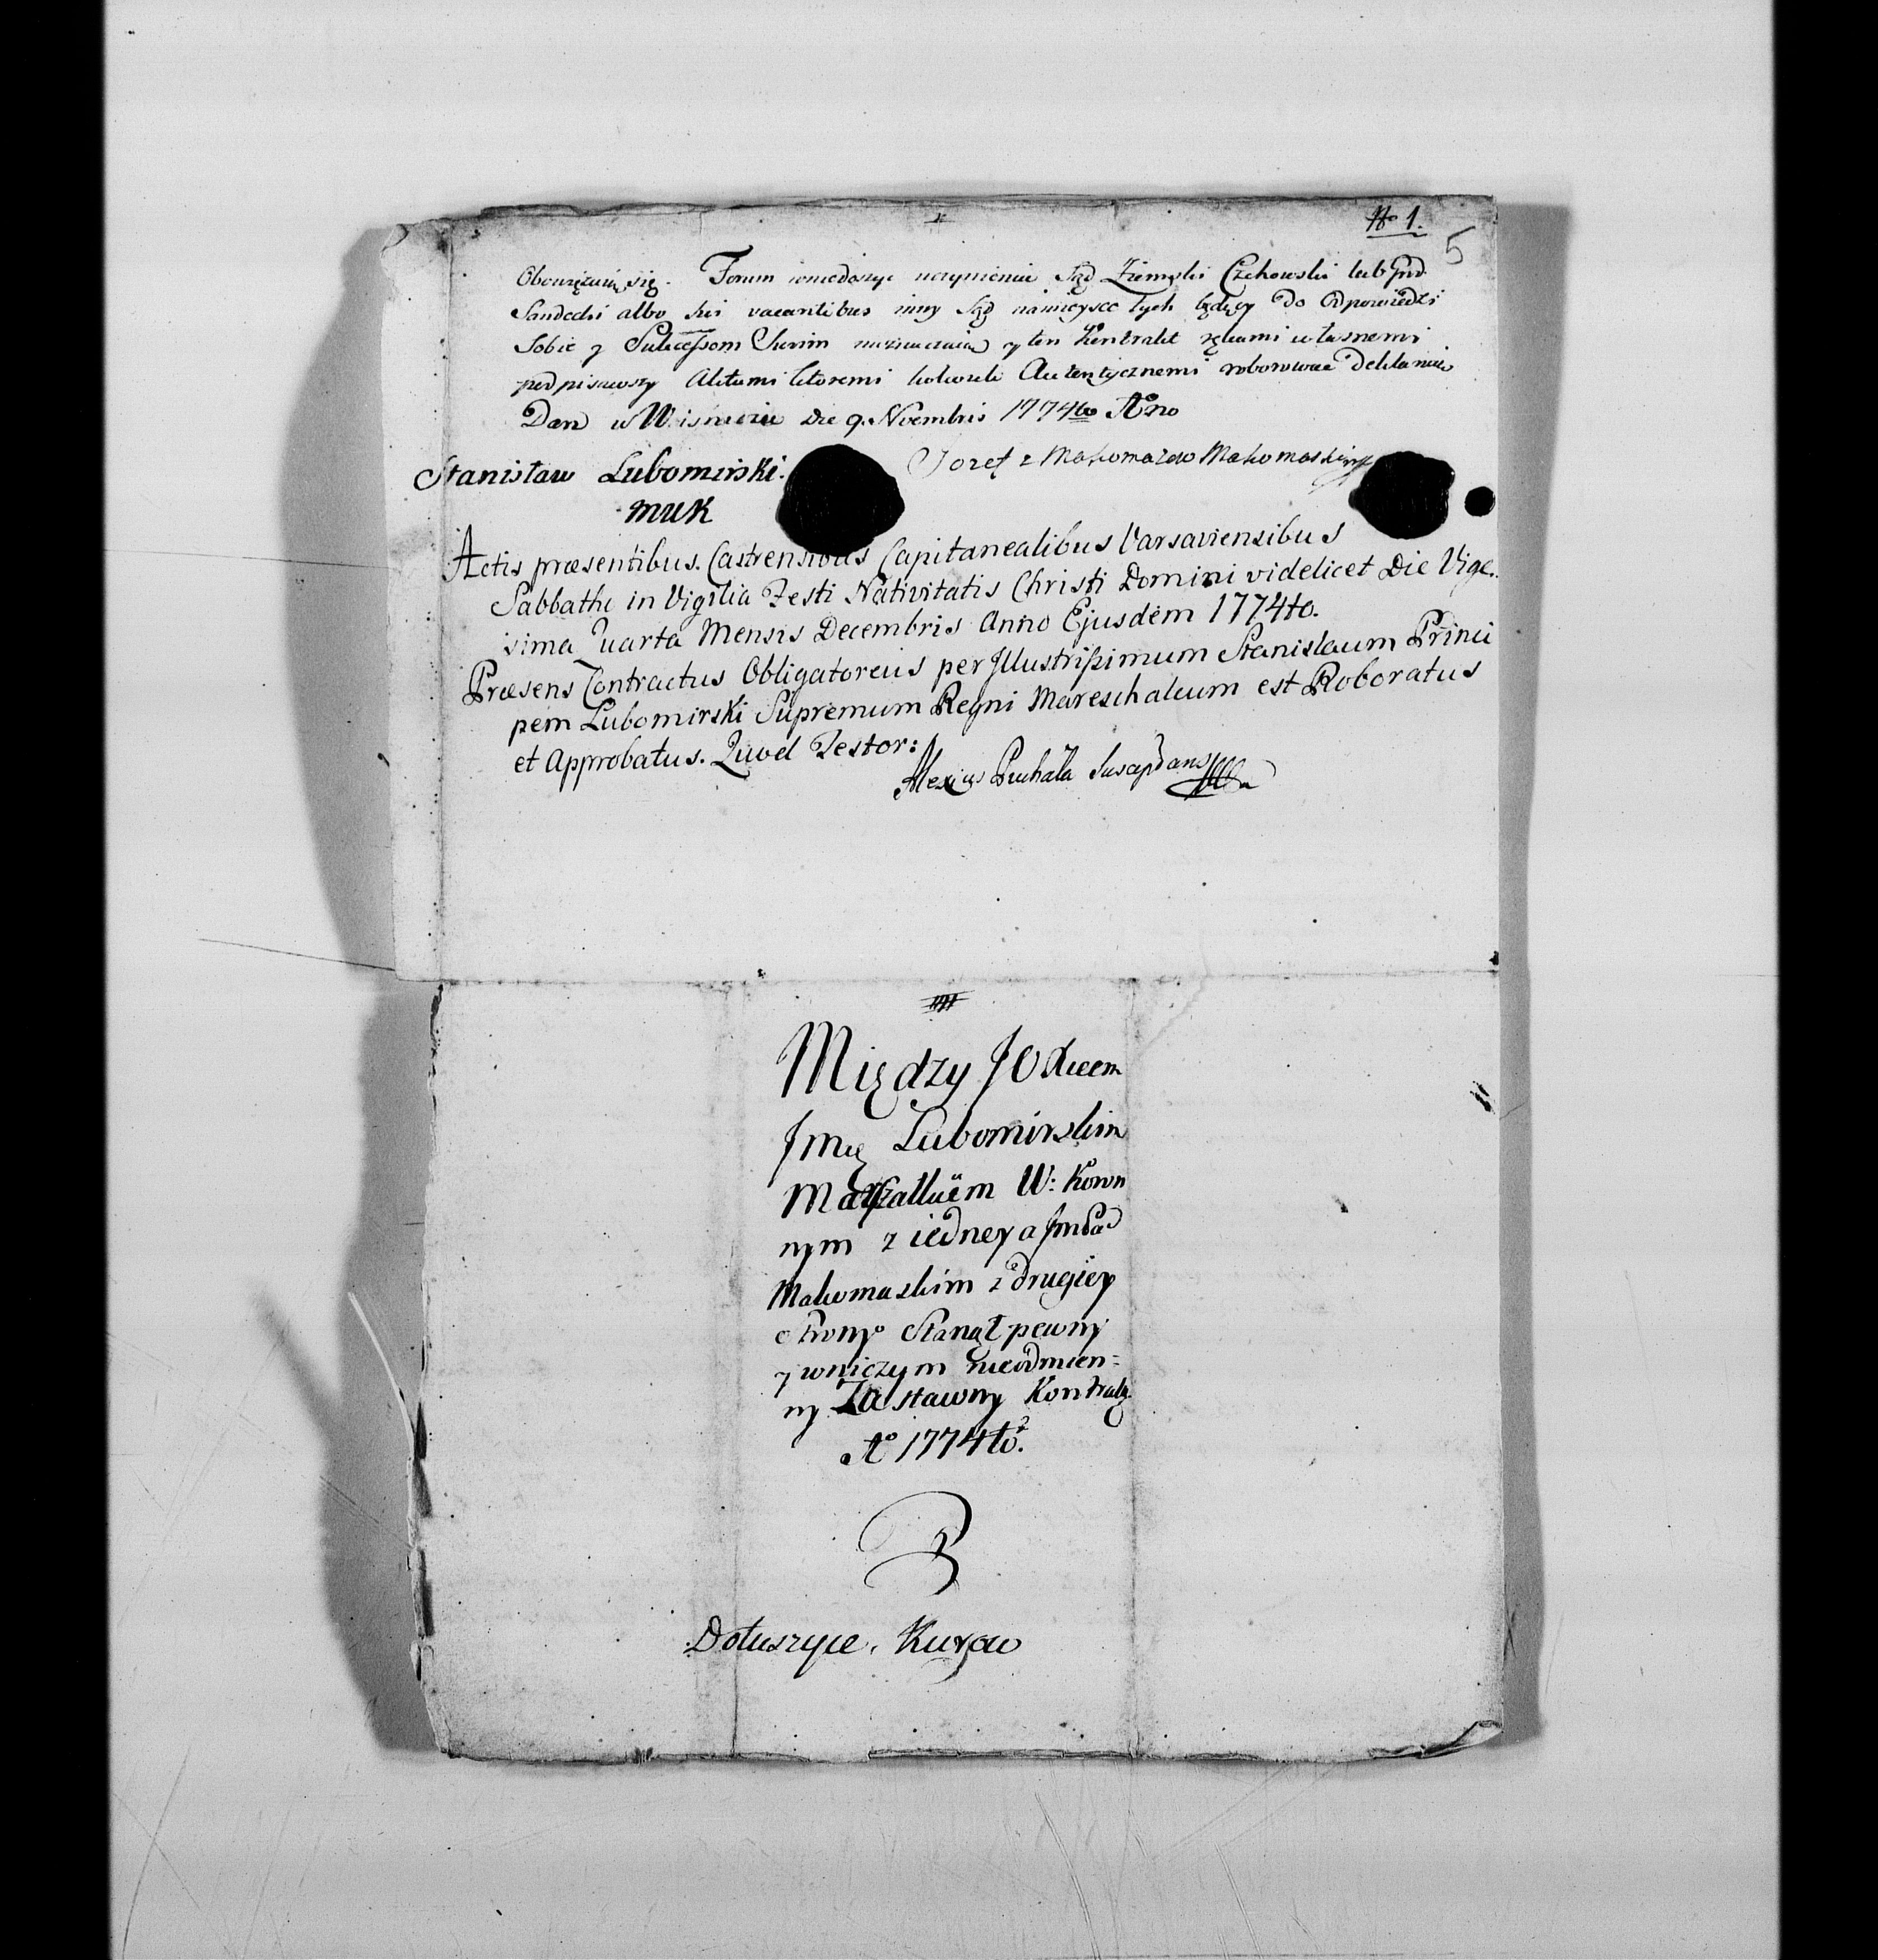 No 1.
5
Obowiązuią się. Forum wniedosyc uczynieniu Sąd Ziemski Czchowski lub Grd
Sandecki albo his vacantibus inny Sąd na mieysce tych będący do odpowiedzi
Sobie y Sukcessom Suum naznaczaią y ten Kontrakt rękami własnemi
podpisawszy Aktami ktoremi kolwiek Autentycznemi roborować deklaruią
Dan w Wisniczu Die 9. Novembris 1774to Ano
Stanisław Lubomirski.
Jozef z Makomazow Makomaski
MWK
Actis præsentibus. Castrensibus Capitanealibus Varsaviensibus
Sabbatho in Vigilia Festi Nativitatis Christi Domini videlicet Die Vige-
sima Quarta Mensis Decembris Anno Ejusdem 1774to.
Præsens Contractus Obligatorius per Jllustrissimum Stanislaum Princi
pem Lubomirski Supremum Regni Mareschalcum est Roboratus
et Approbatus. Quod Testor:
Alexius Puchała Susceptans
Między JO Xcem
Jmcią Lubomirskim
Marszałkiem W: Koron
nym z iedney a Jmc Pa
Makomaskim z drugiey
strony Stanął pewny
y wniczym nieodmien=
ny Zastawny Kontrakt
Ao 1774to.
Dołuszyce, Kurow